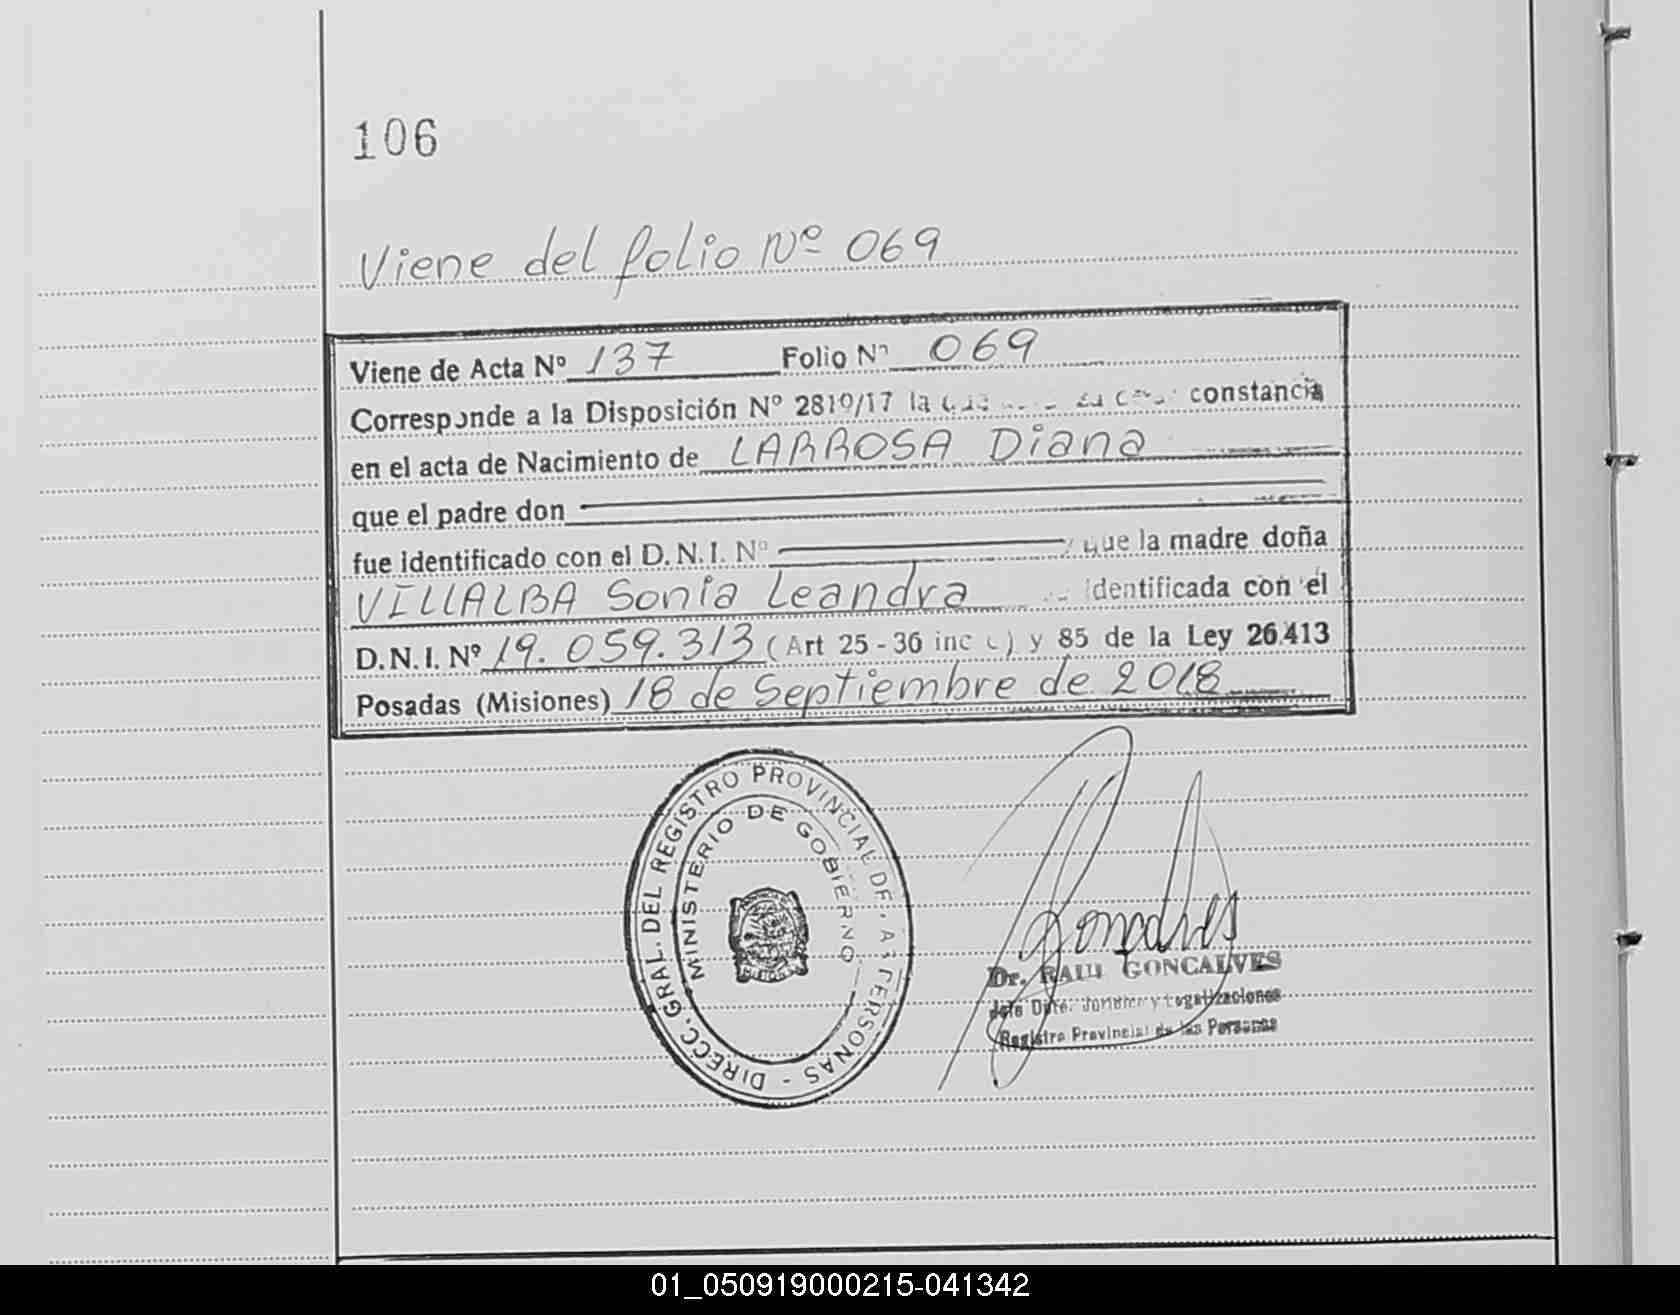 106
Viene del folio Nº 069
Viene de Acta Nº 137 Folio Nº 069
Corresponde a la Disposición Nº 2819/17 la constancia
en el acta de Nacimiento de LARROSA Diana
que el padre don
fue identificado con el D.N.I. Nº que la madre doña
VILLALBA Sonia Leandra identificada con el
D.N.I. Nº 19.059.313 (Art 25 - 36 inc c) y 85 de la Ley 26.413
Posadas (Misiones) 18 de Septiembre de 2018
DIRECC. GRAL. DEL REGISTRO PROVINCIAL DE LAS PERSONAS -
MINISTERIO DE GOBIERNO
Goncalves
Dr. RAUL GONCALVES
Jefe y Legalizaciones
Registro Provincial de las Personas
01_050919000215-041342